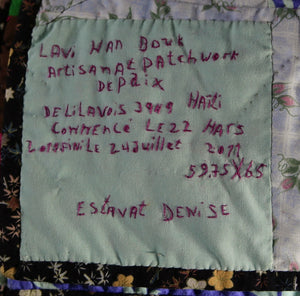 LAVI NAN BOUK
ARTISANAT PATCHWORK
DE PAIX
DELILAVOIS 3949 HAITI
COMMENCÉ LE 22 MARS
2011 FINI LE 24 JUILLET 2011
59,75 X 65
ESTAVAT DENISE